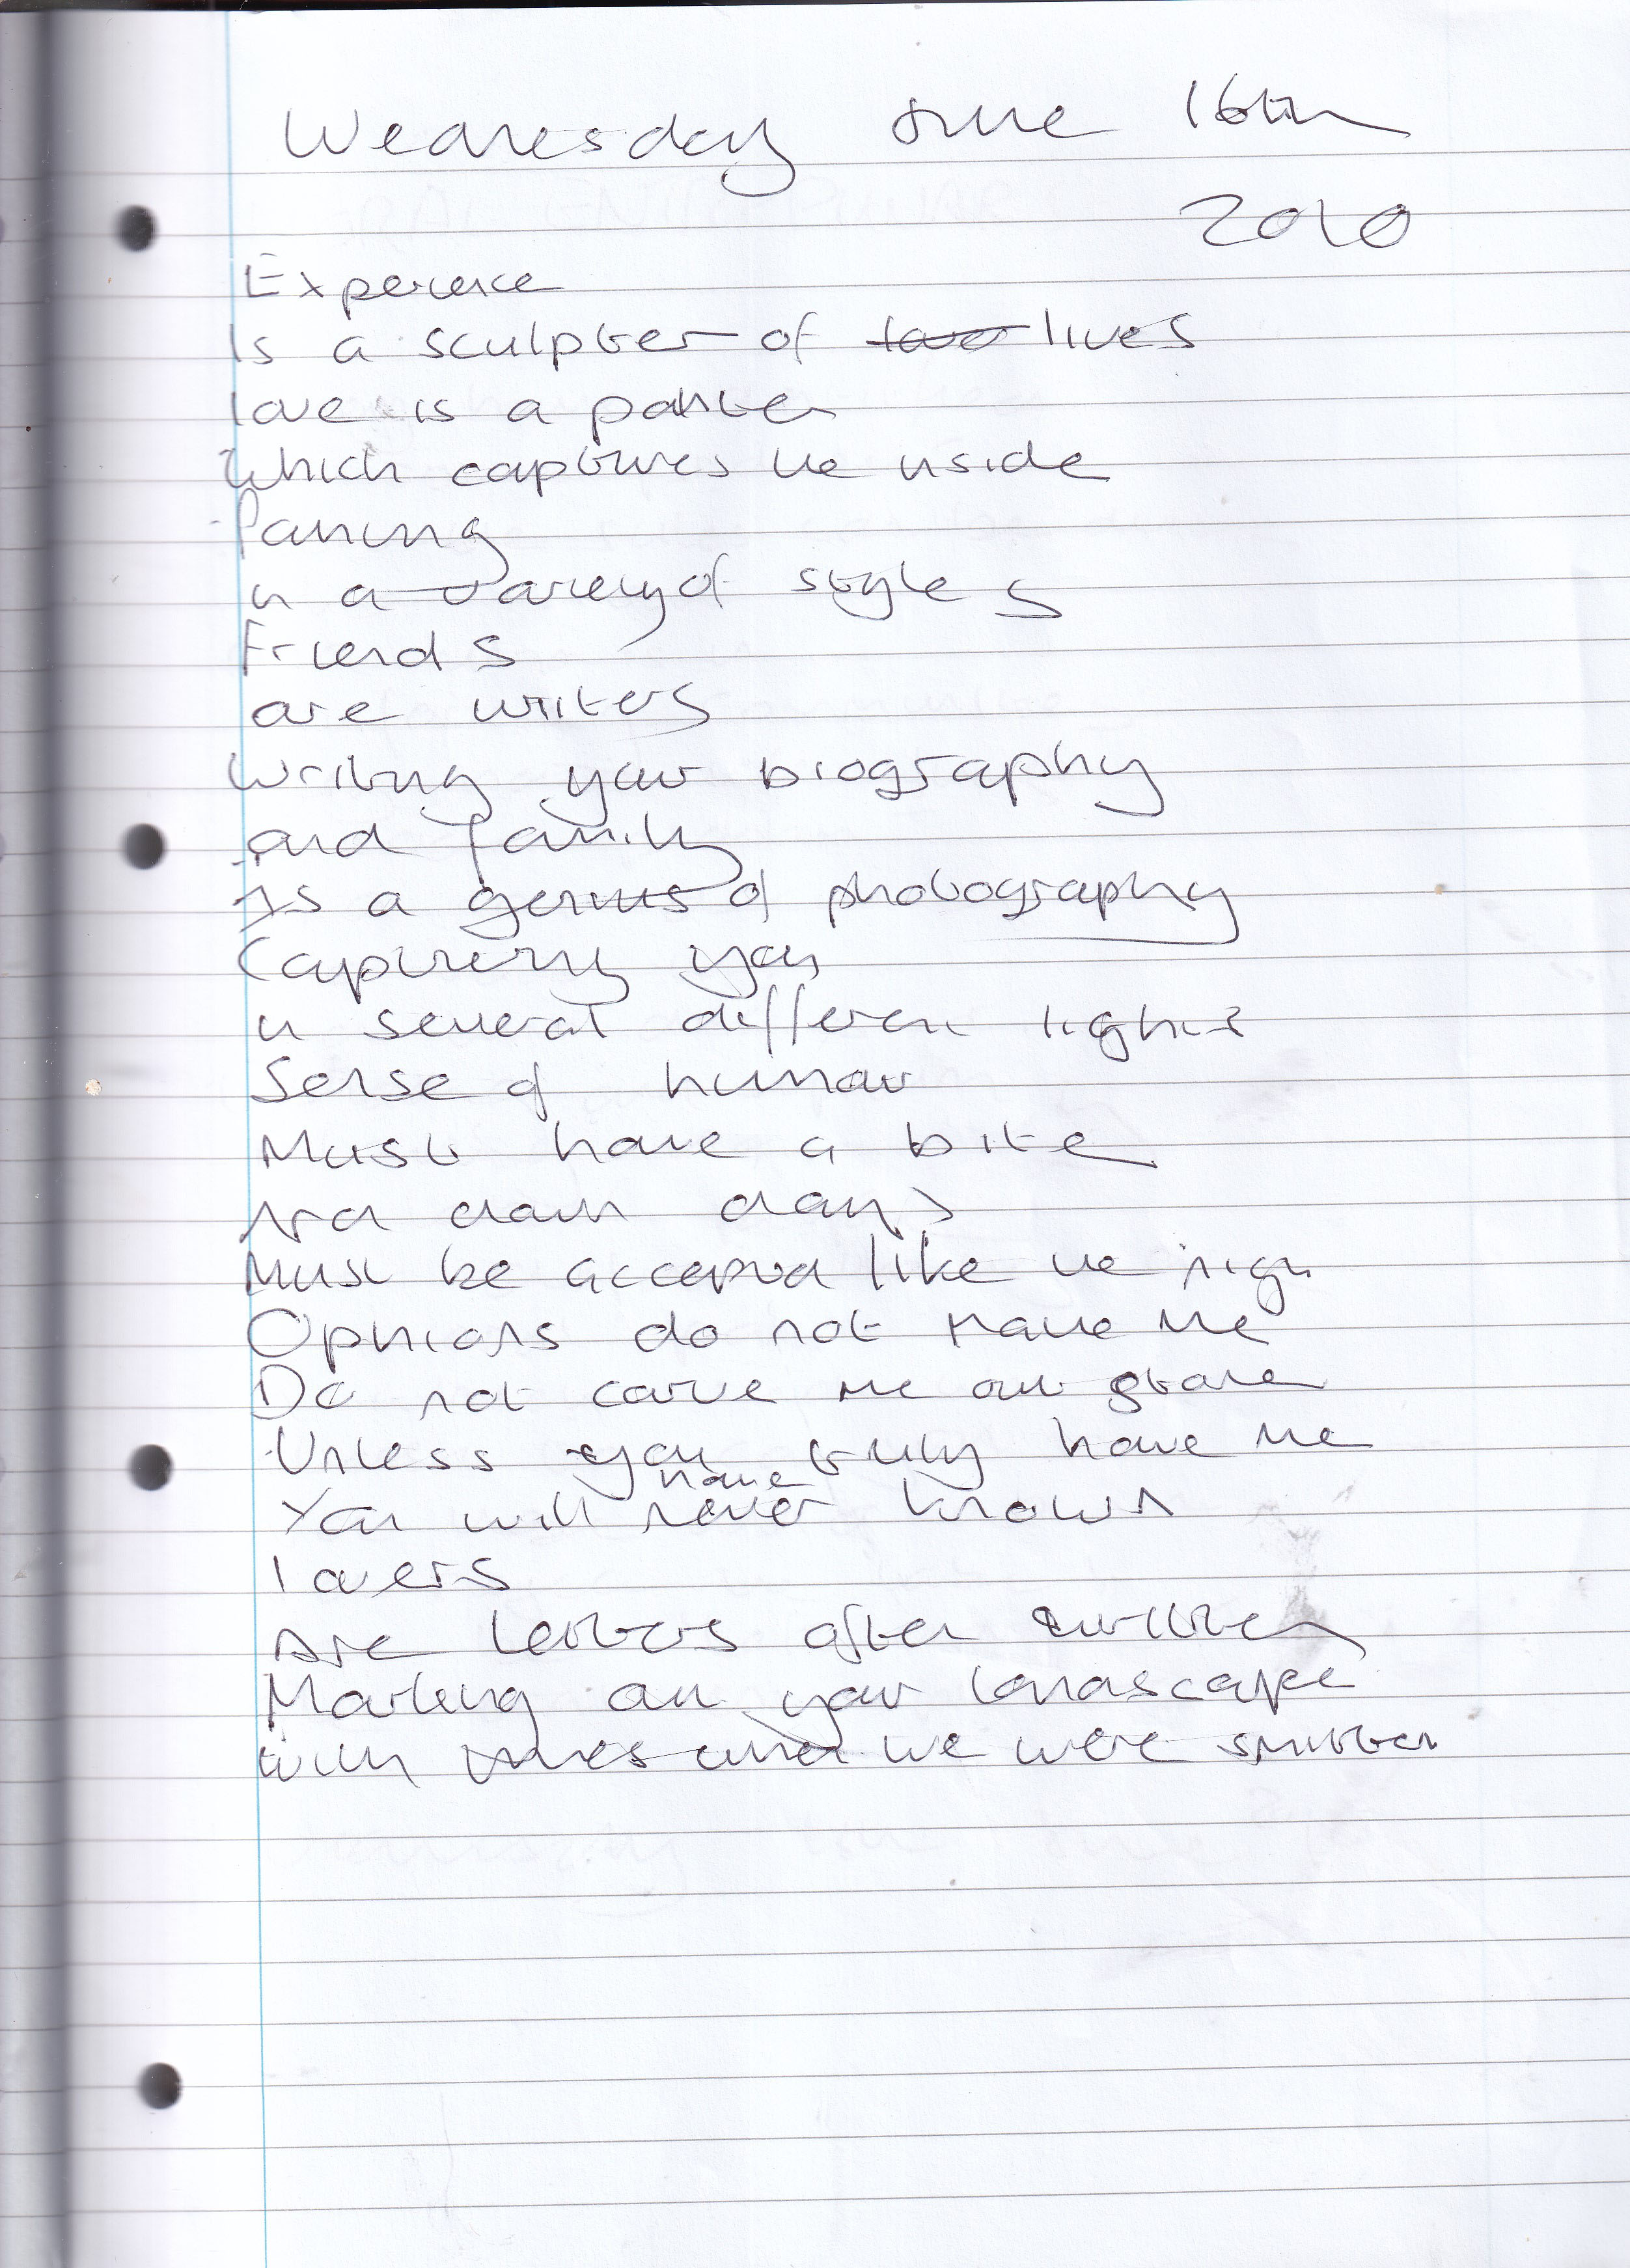 Wednesday June 16th
2010
Experience
Is a sculpter of lives
love is a painter
Which captures the inside
Painting
in a variety of styles
Friends
are writers
Writing your biography
and family
Is a genius of photography
Capturing you
in several different lights
Sense of humour
Must have a bite
And dark days
Must be accepted like the night
Opinions do not make me
Do not carve me out stone
Unless you truly have me
You will never have known
lovers
Are letters often written
Marking out your landscape
With times when we were smitten